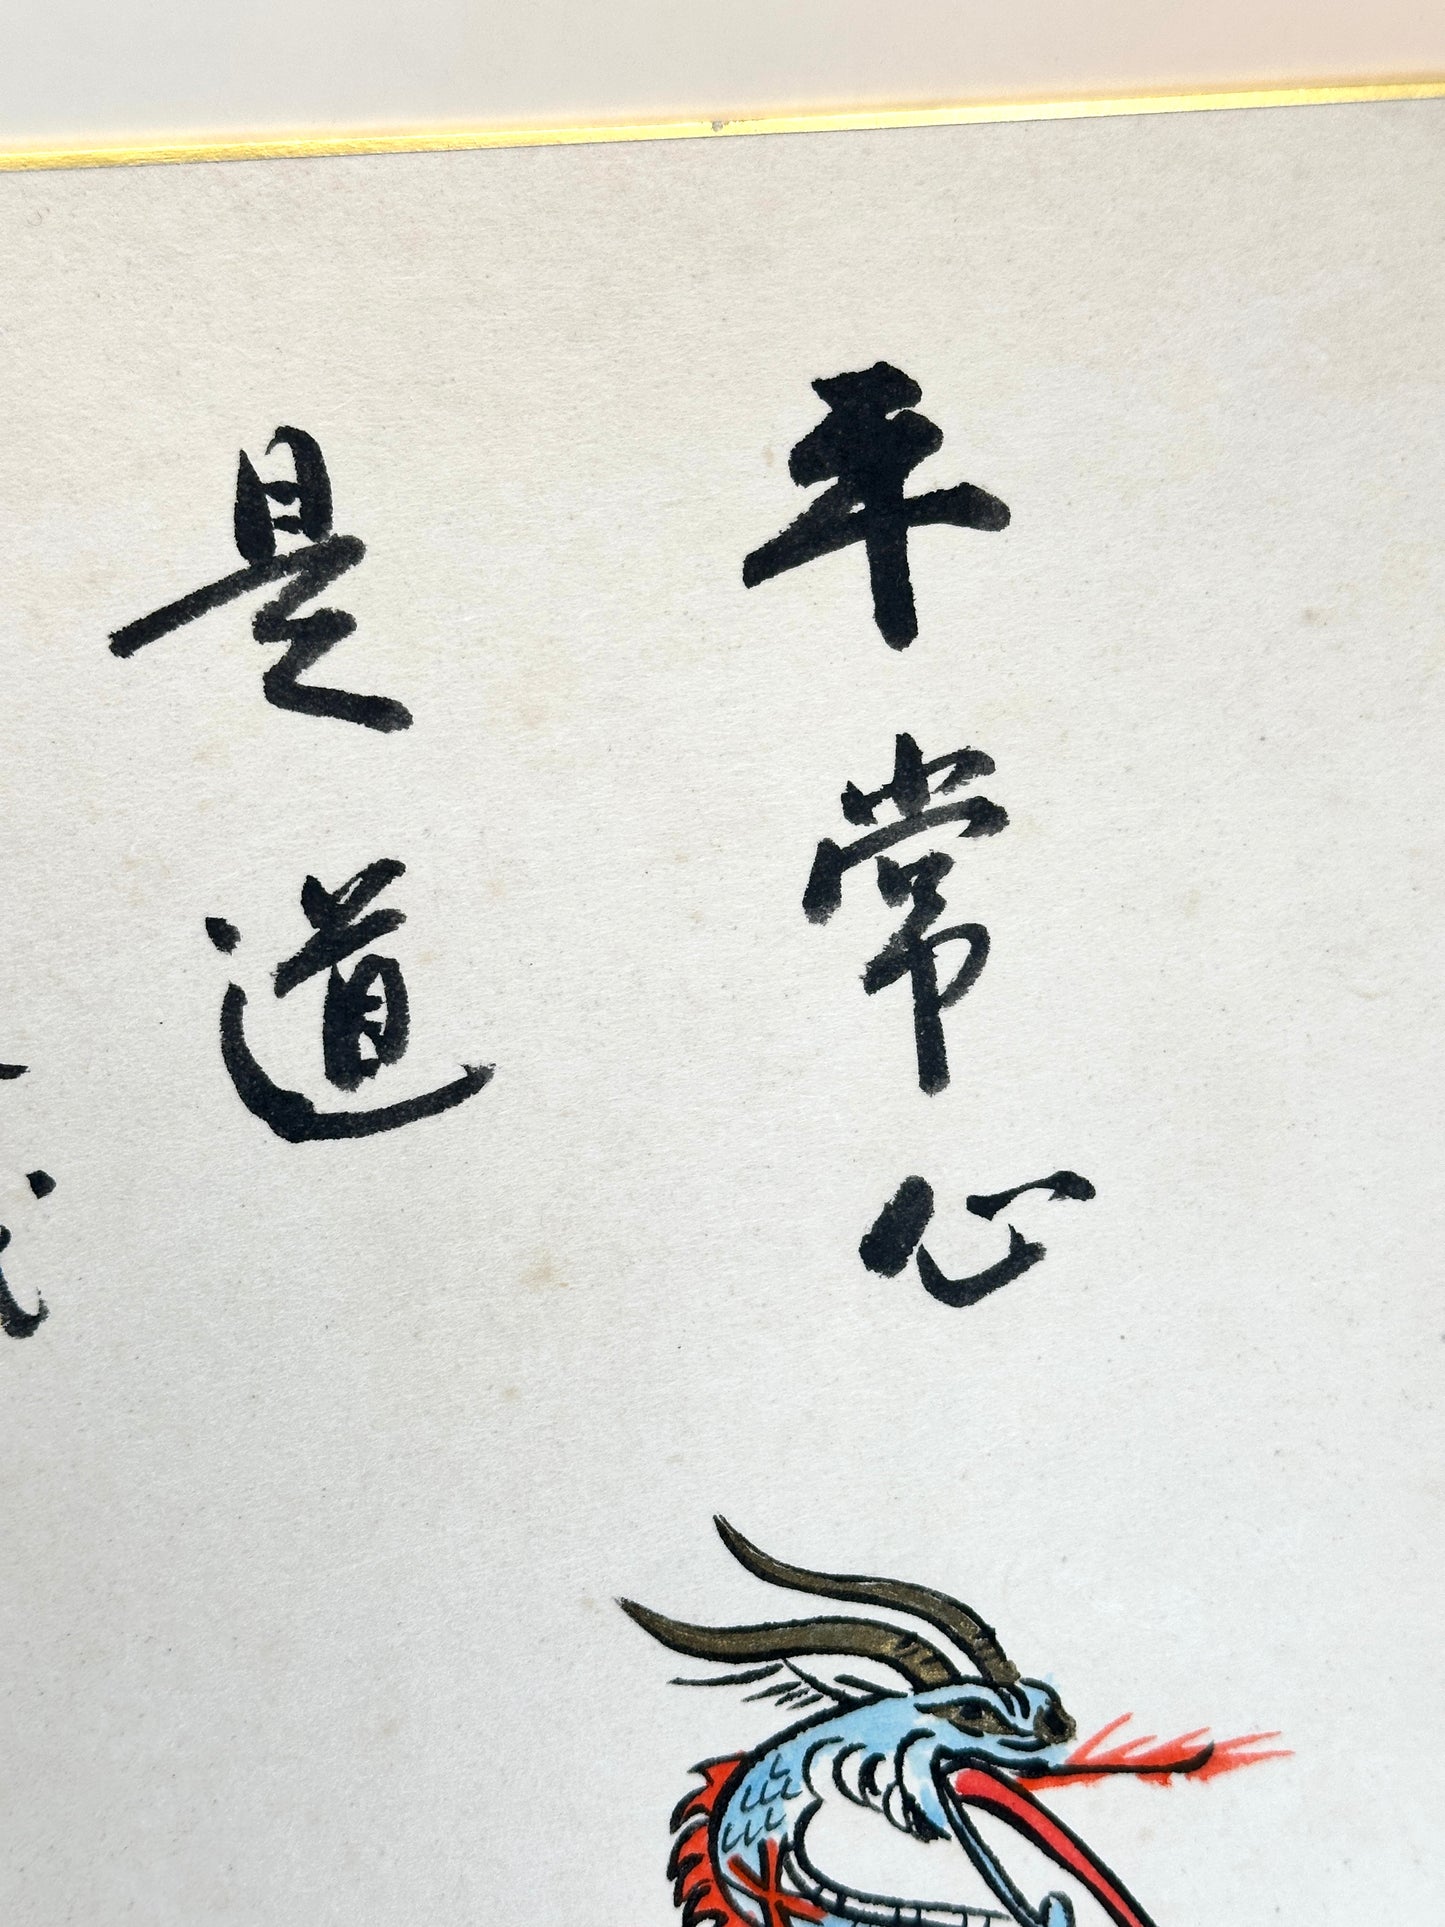 平常心
是道